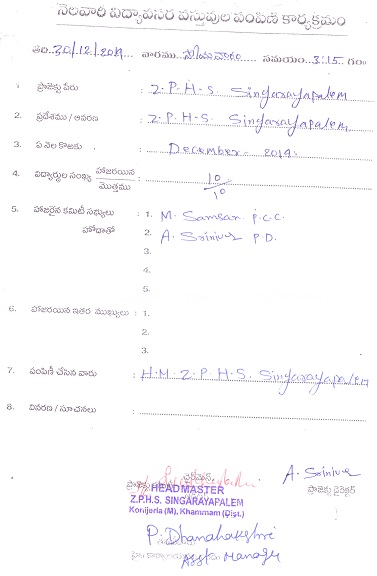 నెలవారీ విద్యావసర వస్తువుల పంపిణీ కార్యక్రమం
తేది: 30/12/2019 వారము సోమవారం సమయం: 3:15 గం
1. ప్రాజెక్టు పేరు : Z.P.H.S. Singarayapalem
2. ప్రదేశము / ఆవరణ : Z.P.H.S. Singarayapalem
3. ఏ నెల కొఱకు : December - 2019.
4. విద్యార్థుల సంఖ్య హాజరయిన / మొత్తము : 10/10
5. హాజరైన కమిటీ సభ్యులు : 1. M. Samsan P.C.C.
హోదాతో 2. A. Srinivas P.D.
3.
4.
5.
6. హాజరయిన ఇతర ముఖ్యులు : 1.
2.
3.
7. పంపిణీ చేసిన వారు : H.M. Z.P.H.S. Singarayapalem
8. వివరణ / సూచనలు :
ఛైర్మన్ A. Srinivas
ప్రాజెక్టు ప్రాజెక్టు డైరెక్టర్
HEADMASTER
Z.P.H.S. SINGARAYAPALEM
Konijerla (M), Khammam (Dist.)
P. Dhanalakshmi
Asst Manager